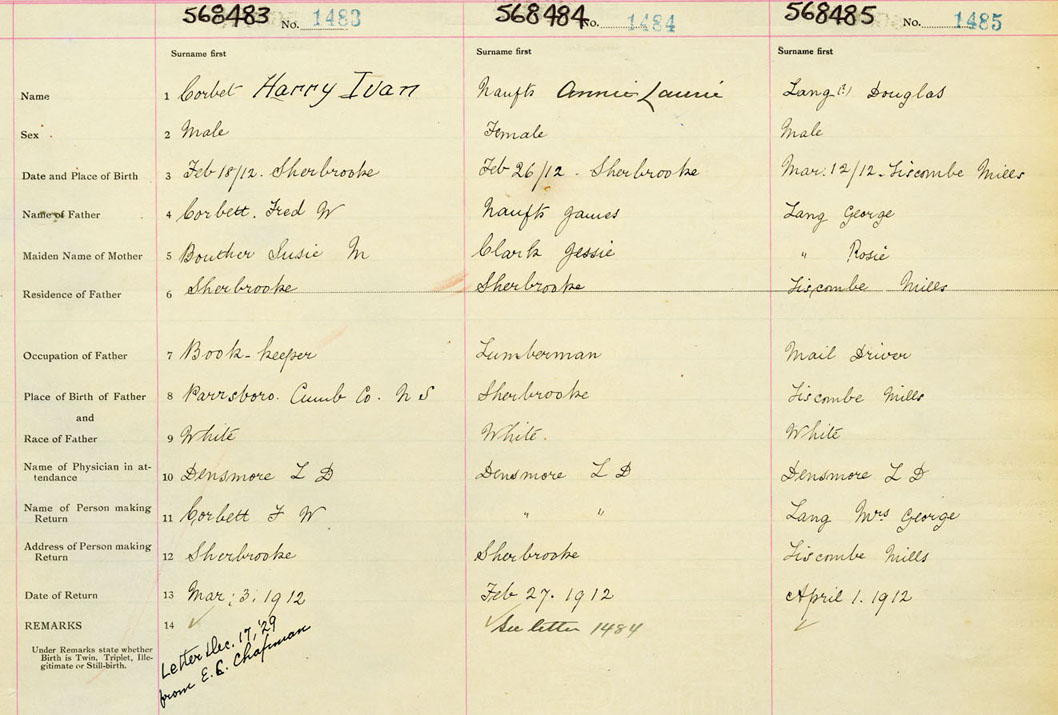 568483 No. 1483 568484 No. 1484 568485 No. 1485
Surname first Surname first Surname first
Name 1 Corbet Harry Ivan Naufts Annie Laurie Lang Douglas
Sex 2 Male Female Male
Date and Place of Birth 3 Feb 18/12. Sherbrooke Feb 26/12 - Sherbrooke Mar: 12/12 - Liscombe Mills
Name of Father 4 Corbett. Fred W Naufts James Lang George
Maiden Name of Mother 5 Susie M Clark Jessie " Rosie
Residence of Father 6 Sherbrooke Sherbrooke Liscombe Mills
Occupation of Father 7 Book-keeper Lumberman Mail Driver
Place of Birth of Father 8 Parrsboro. Cumb Co. N S Sherbrooke Liscombe Mills
and
Race of Father 9 White White. White
Name of Physician in at-
tendance 10 Densmore L D Densmore L D Densmore L D
Name of Person making
Return 11 Corbett F W " " Lang Mrs George
Address of Person making
Return 12 Sherbrooke Sherbrooke Liscombe Mills
Date of Return 13 Mar: 3. 1912 Feb 27. 1912 April 1. 1912
REMARKS 14 ✓ ✓ See letter 1484 ✓
Under Remarks state whether
Birth is Twin, Triplet, Ille-
gitimate or Still-birth.
Letter Dec. 17, '29
from E. C. Chapman